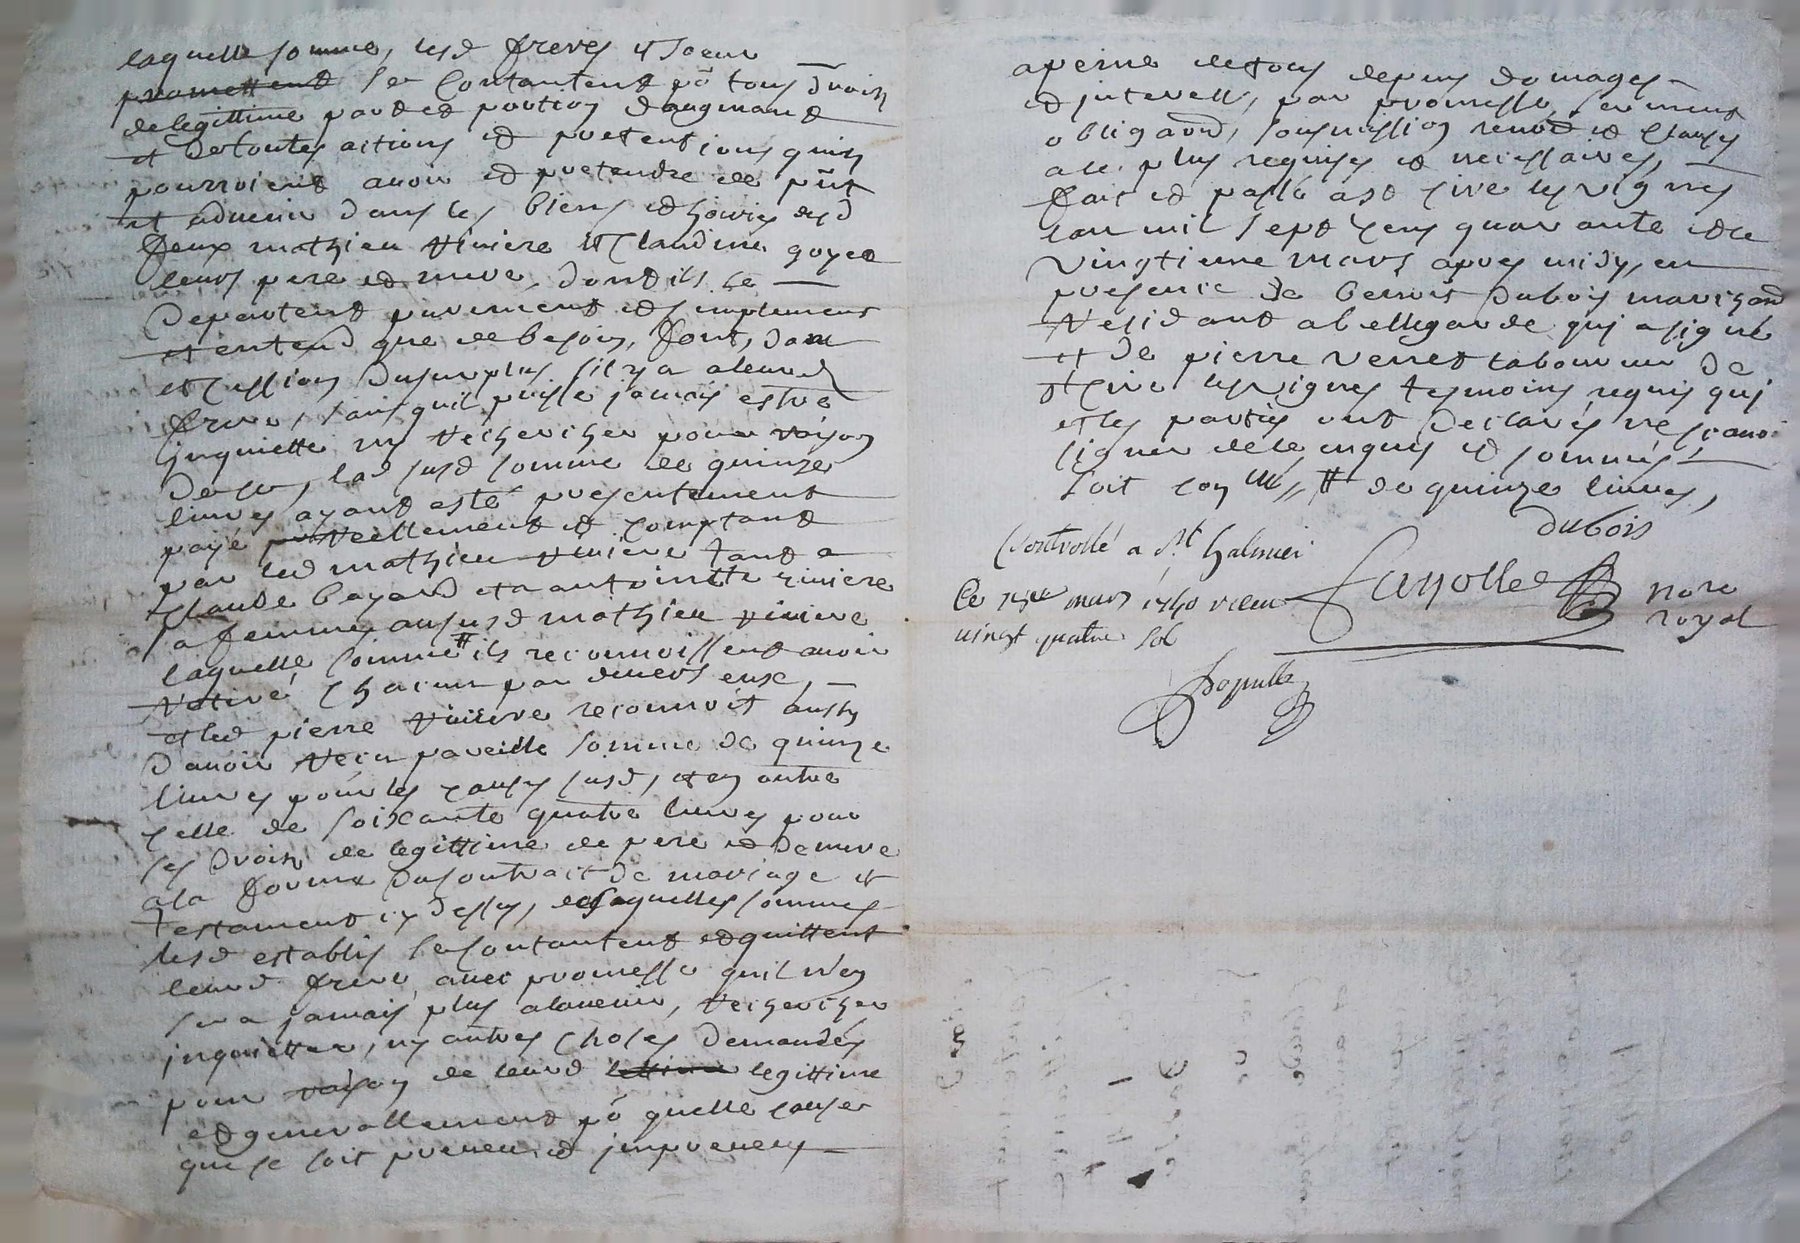 laquelle somme, lesd freres et soeur
promettent se contantent po tous droits
de legittime part et portion daugmant
et de toutes actions et pretentions quils
pourroient avoir et pretendre de pnt
et advenir dans les biens et hoiries desd
feux mathieu riviere et Claudine goyet
leurs pere et mere, dont ils se
departent purement et simplement
et entend que de besoin, font, don
et cession du surplus sil y a aleurd
frere, sans quil puisse jamais estre
inquietté ny recherché pour raison
de ce, lad susd somme de quinze
livres ayant esté presentement
payé reellement et comptant
par led mathieu riviere tant a
Claude bayard et a antoinette riviere
sa femme, au susd mathieu riviere
laquelle somme ils reconnoissent avoir
retiré chacun par devers eux,
et led pierre riviere reconnoit aussy
davoir reçu pareille somme de quinze
livres pour les causes susd, et en outre
celle de soixante quatre livres pour
ses droits de legittime de pere et de mere
a la forme du contrait de mariage et
testament cy dessus, desquelles sommes
lesd establis se contantent et quittent
leurd frere, avec promesse quil nen
sera jamais plus alavenir, recherché
inquietter, ny autres choses demandés
pour raison de leurd legittime
et generallement po quelle cause
que se soit preveu et impreveus
apeine de tous depens domages
et interest, par promesse, serment
obligaond, soumission renond et clauses
ale plus requises et necessaires,
fait et passé a st Cire les vignes
lan mil sept cens quarante et le
vingtieme mars apres midy, en
presence de benoit dubois marchand
residant a bellegarde qui a signé
et de pierre verret laboureur de
st Cire les vignes tesmoins requis qui
et les parties ont declarés ne scavoir
signer de ce enquis et sommés
soit con de quinze livres,
dubois
Controllé a St halmier
Ce mars 1740 receu
vingt quatre sol
fayolle nore
royal